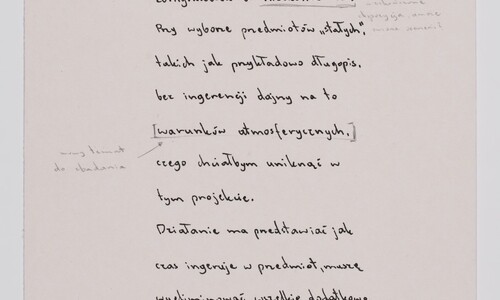 Przy wyborze przedmiotów „stałych”,
takich jak przykładowo długopis,
bez ingerencji dajny na to
[warunków atmosferycznych,]
nowy temat
do zbadania
czego chciałbym uniknąć w
tym projekcie.
Działanie ma przedstawiać jak
czas ingeruje w przedmiot, muszę
wyeliminować wszelkie dodatkowe